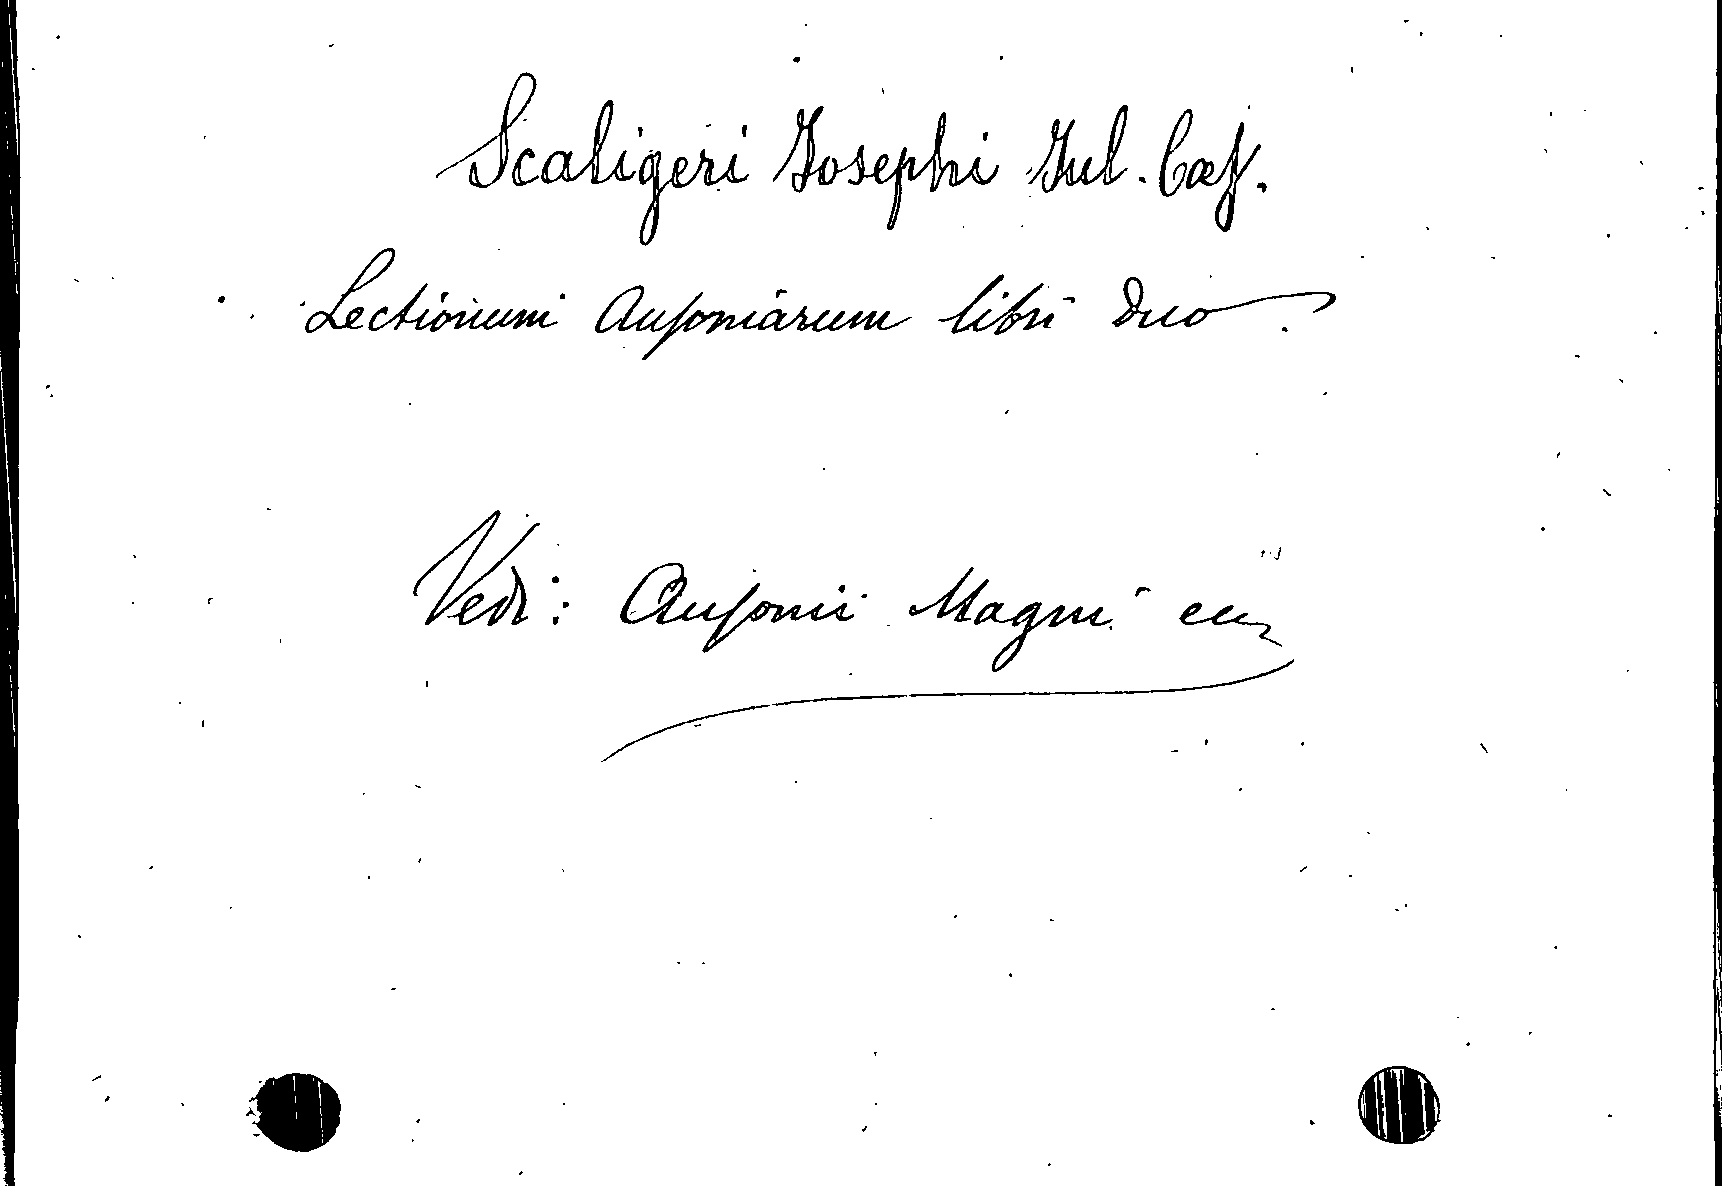 Scaligeri Josephi Jul. Caeſ.
Lectionum Auſoniarum libri duo.
Vedi: Auſonii Magni